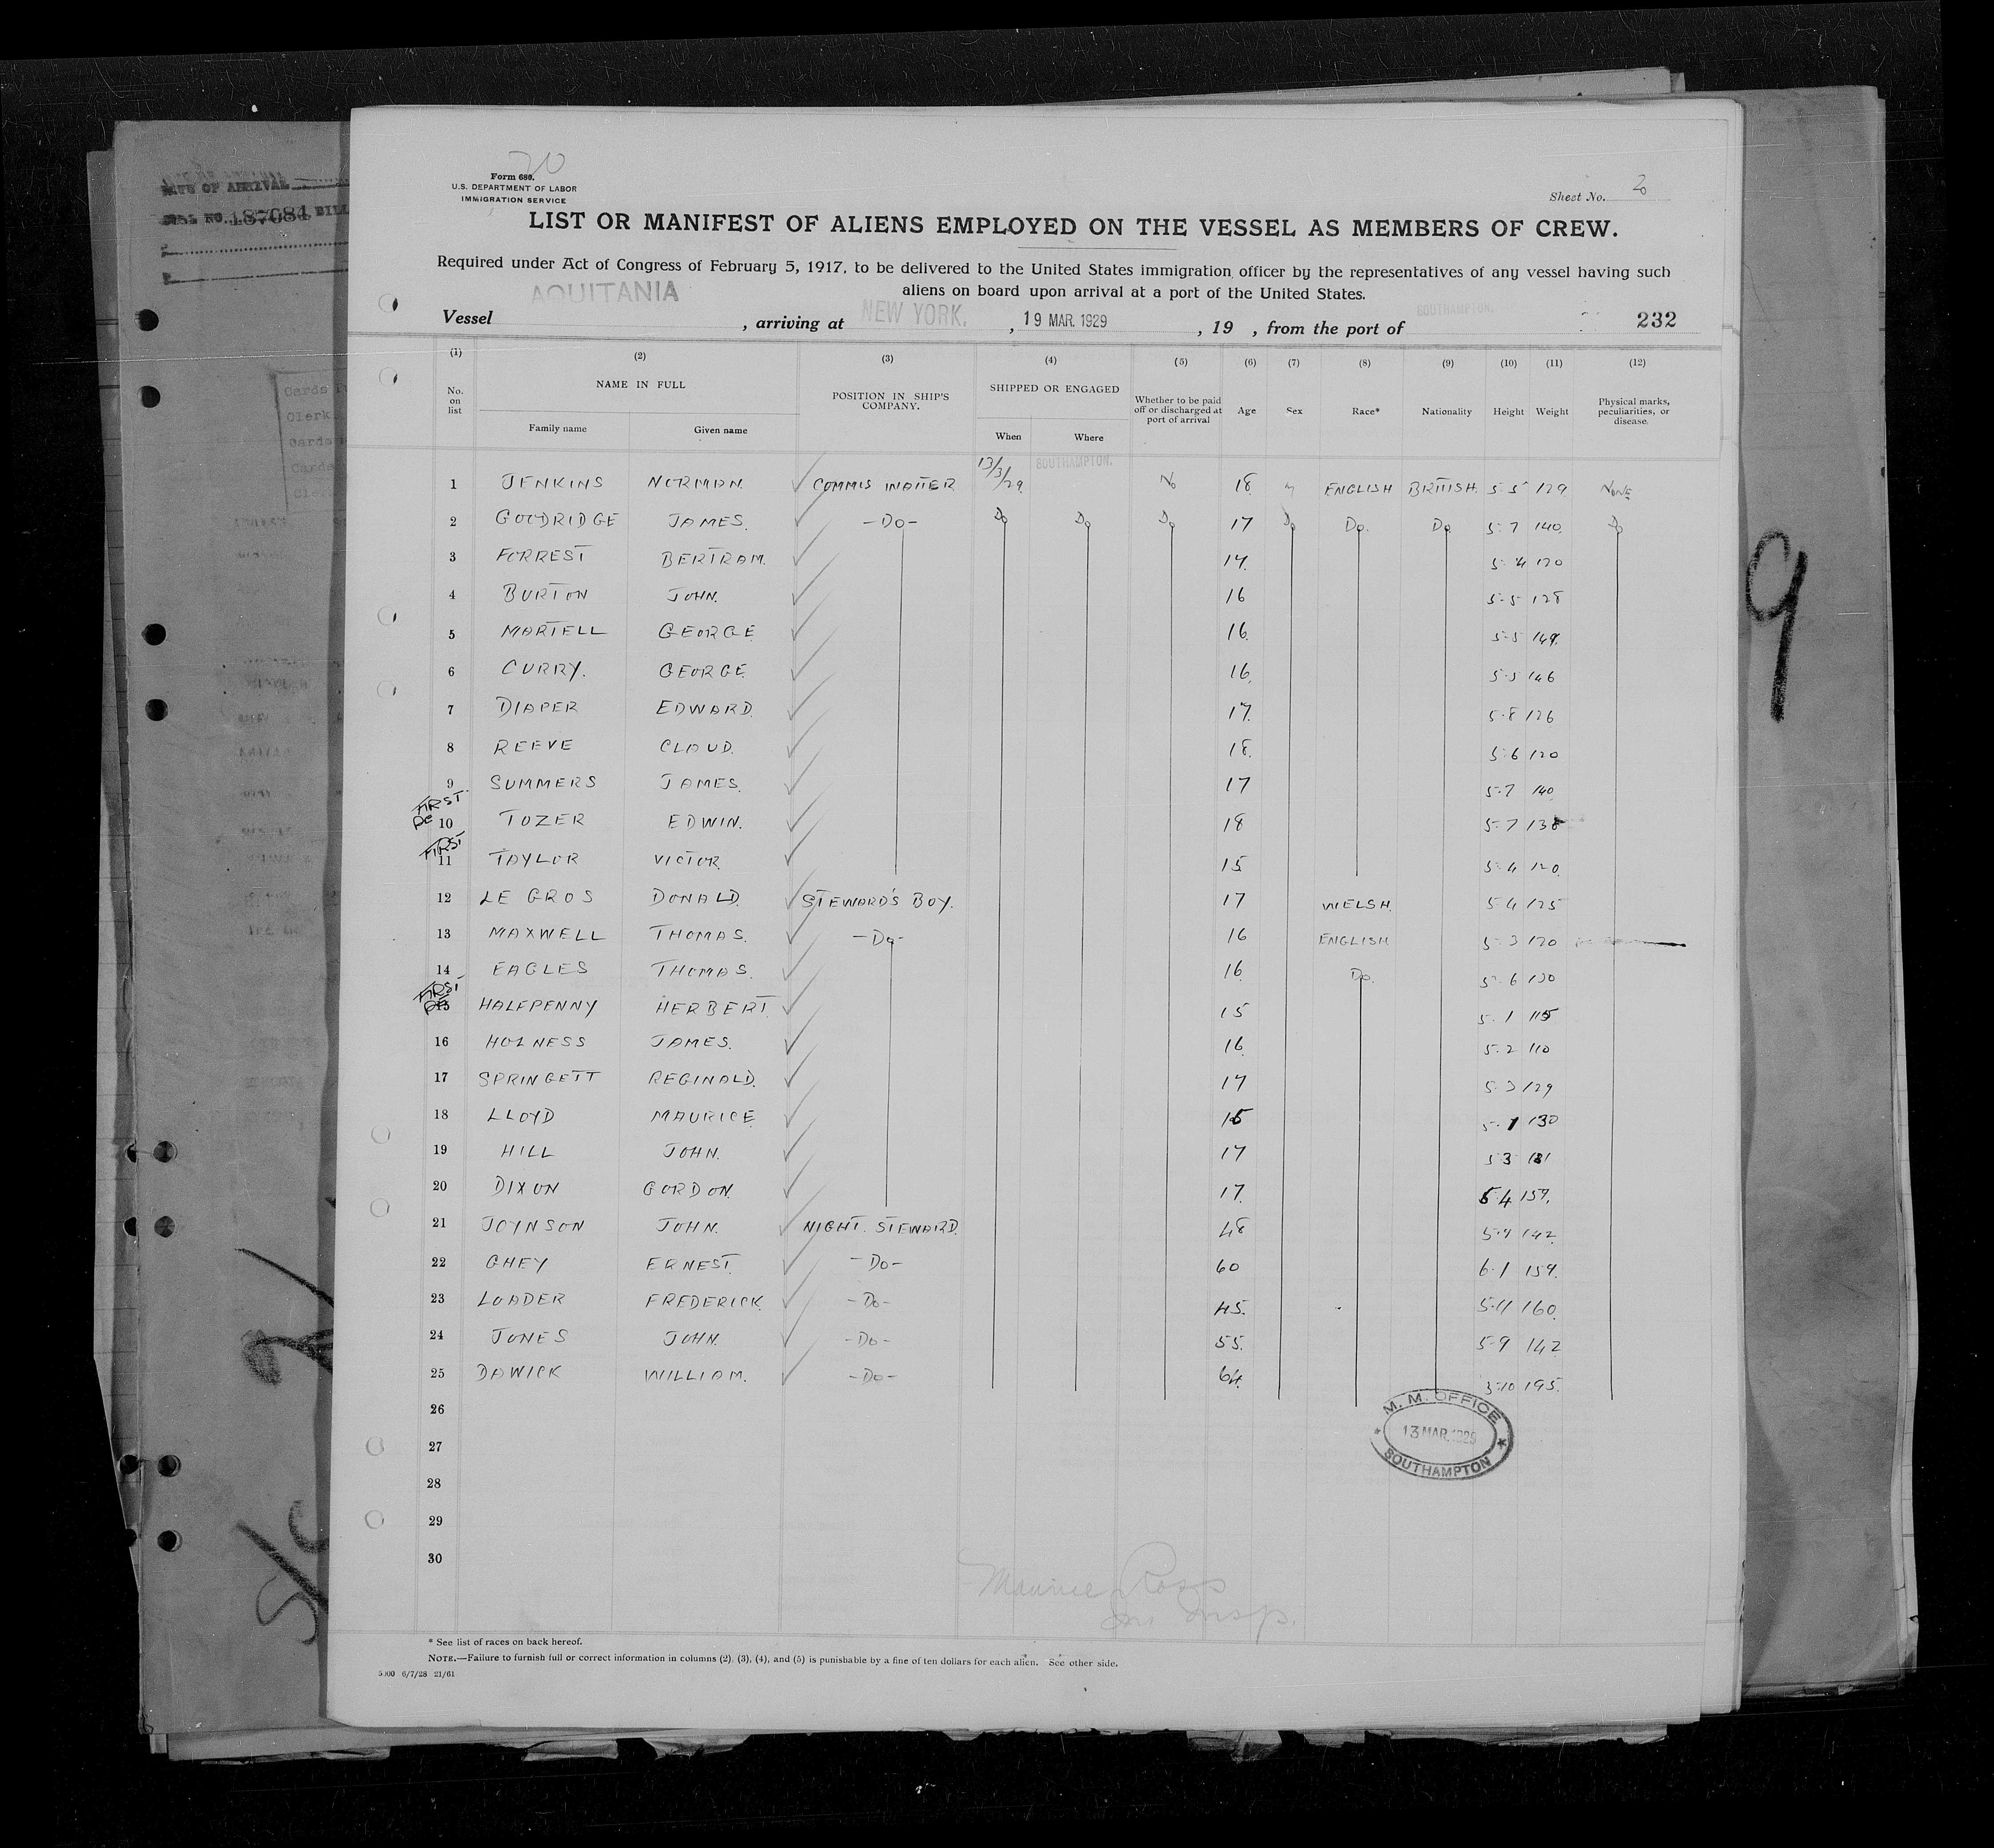 20
Form 680.
U.S. DEPARTMENT OF LABOR
IMMIGRATION SERVICE
Sheet No.
LIST OR MANIFEST OF ALIENS EMPLOYED ON THE VESSEL AS MEMBERS OF CREW.
Required under Act of Congress of February 5, 1917, to be delivered to the United States immigration officer by the representatives of any vessel having such
aliens on board upon arrival at a port of the United States.
Vessel AQUITANIA , arriving at NEW YORK. , 19 MAR. 1929 , 19 , from the port of SOUTHAMPTON. 232
(1) (2) (3) (4) (5) (6) (7) (8) (9) (10) (11) (12)
No. on list NAME IN FULL POSITION IN SHIP'S COMPANY. SHIPPED OR ENGAGED Whether to be paid off or discharged at port of arrival Age Sex Race* Nationality Height Weight Physical marks, peculiarities, or disease.
Family name Given name When Where
1 JENKINS NORMAN. COMMIS WAITER 13/3/29. SOUTHAMPTON. No 18 M ENGLISH BRITISH. 5 5 129 NONE
2 GOODRIDGE JAMES. -Do- Do Do Do 17 Do Do. Do 5.7 140. Do
3 FORREST BERTRAM. 17. 5.4 120
4 BURTON JOHN. 16 5-5 128
5 MARTELL GEORGE. 16. 5-5 149.
6 CURRY. GEORGE. 16. 5-5 146
7 DIAPER EDWARD. 17. 5.8 126
8 REEVE CLAUD. 18. 5.6 120
9 SUMMERS JAMES. 17 5.7 140
FIRST
10 TOZER EDWIN. 18 5.7 138
FIRST
11 TAYLOR VICTOR. 15 5.4 120.
12 LE GROS DONALD. STEWARD'S BOY. 17 WELSH. 5.4 125
13 MAXWELL THOMAS. -Do- 16 ENGLISH 5.3 120
14 EAGLES THOMAS. 16. Do. 5.6 130
FIRST
15 HALFPENNY HERBERT. 15 5.1 115
16 HOLNESS JAMES. 16. 5.2 110
17 SPRINGETT REGINALD. 17 5.3 129
18 LLOYD MAURICE 130
19 HILL JOHN. 17 5 3
20 DIXON GORDON. 17. 5.4 159.
21 JOYNSON JOHN. NIGHT. STEWARD. 48 142
22 GHEY ERNEST. -Do- 60 6.1 159.
23 LOADER FREDERICK. -Do- 45. 5.11 160.
24 JONES JOHN. -Do- 55. 5-9 142
25 DAWICK WILLIAM. -Do- 64. 5.10 195.
26
27
28
29
30
M. M. OFFICE
13 MAR. 1929
SOUTHAMPTON
Maurice Ross
Im Insp.
* See list of races on back hereof.
NOTE.—Failure to furnish full or correct information in columns (2), (3), (4), and (5) is punishable by a fine of ten dollars for each alien. See other side.
5000 6/7/28 21/61
187084
9